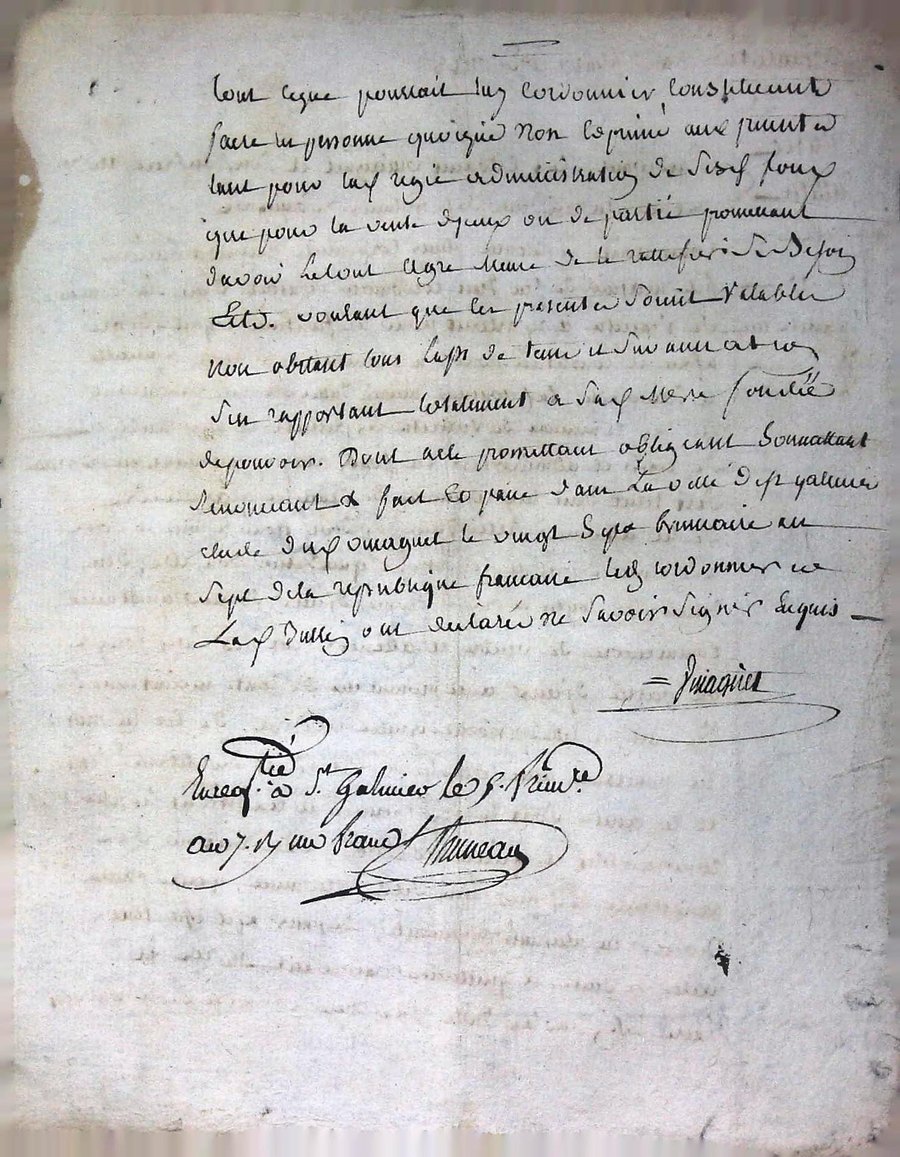 tout ceque pourrait led Cordonnier Constituant
faire en personne quoique non Exprimé aux presentes
tant pour lad regie administration de Sesd fonds
que pour la vente diceux ou de partie promettant
davoir le tout agre meme de le rattifier Si Besoin
Est. voulant que les presentes Soient valables
non obstant tous laps de tems et Surannation
Sen rapportant totalement a Sad Mere fondée
de pouvoir. Dont acte promettant obligeant Soumettant
Renonceant & fait Et passé dans la ville de St galmier
etude du le vingt Sept brumaire an
Sept de la republique francaise led Cordonnier et
Lad ont declarés ne Savoir Signer Enquis
Enregtré à St Galmier le 5. frimre
an 7. Ry un franc